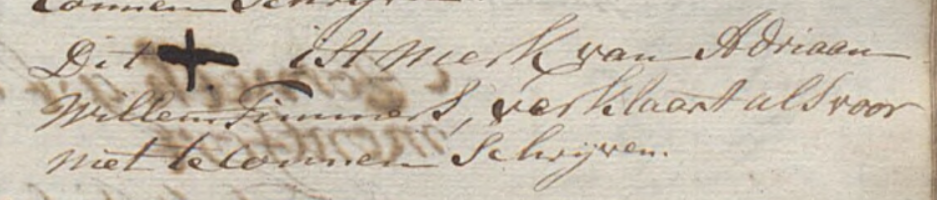 Connen Schrijven
Dit + ist merk van Adriaan
Willem Timmers, verklaart als voor
niet te Connen Schrijven.